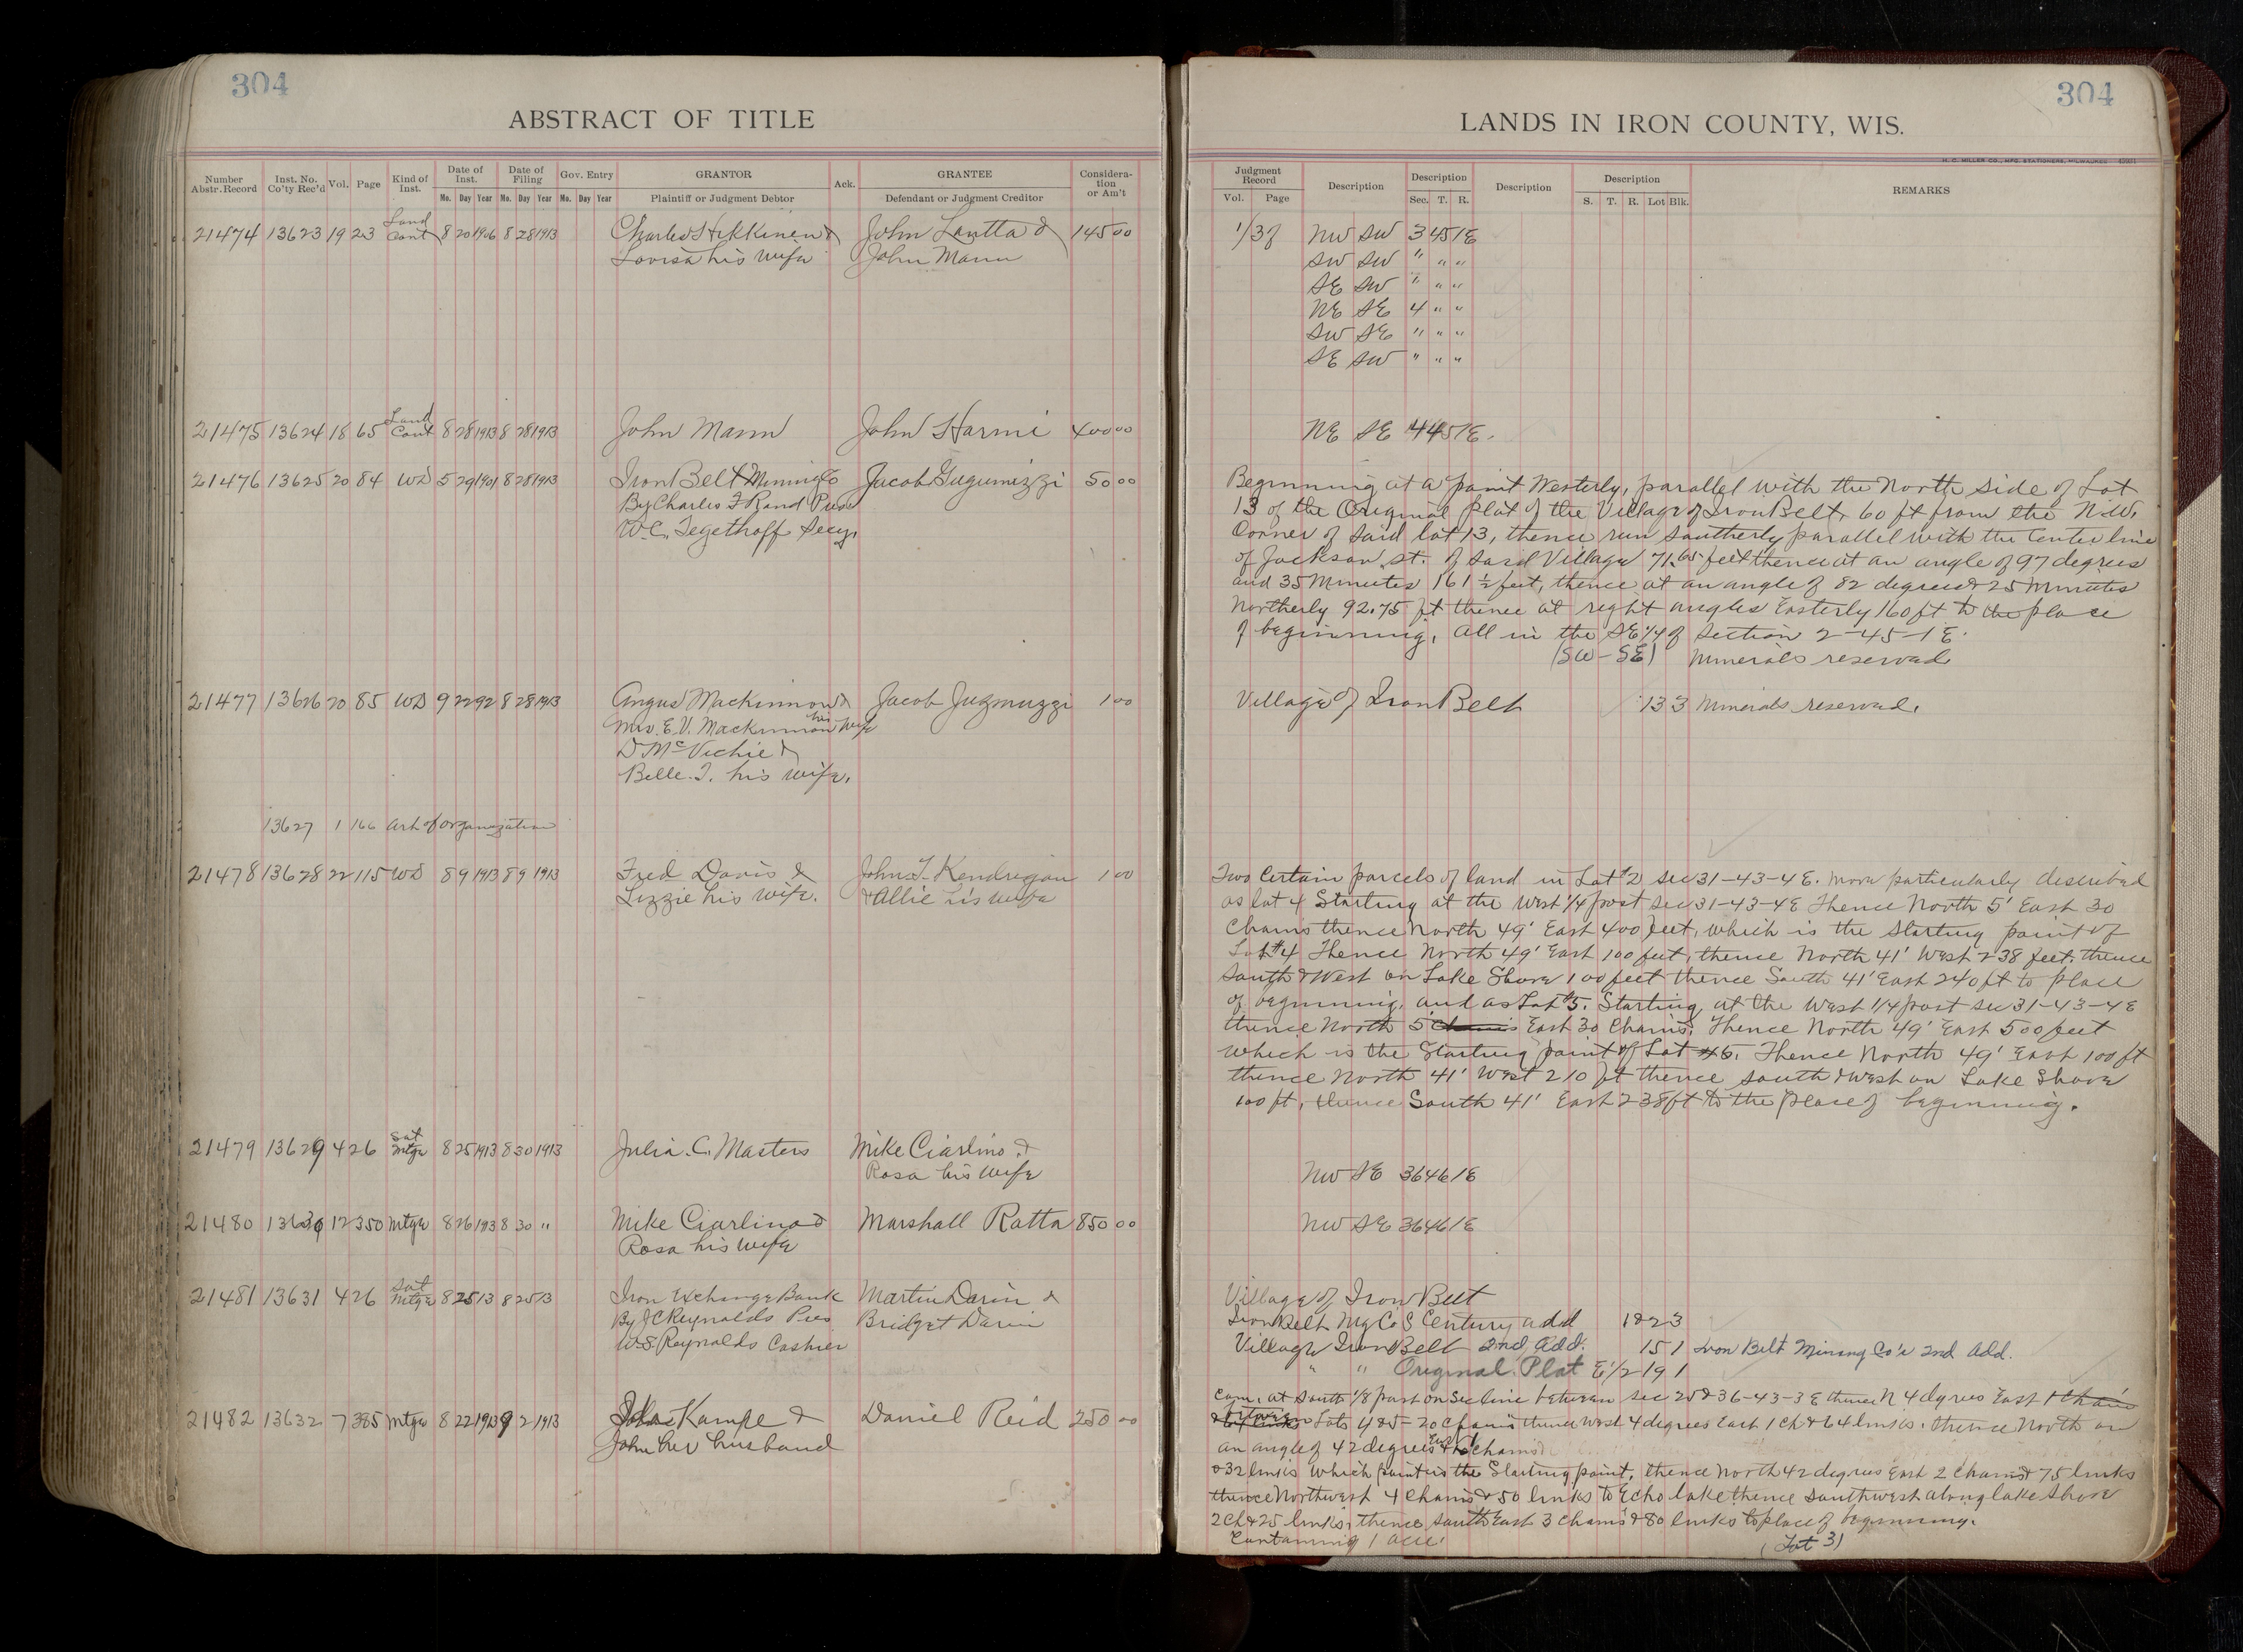 304
304
ABSTRACT OF TITLE
LANDS IN IRON COUNTY, WIS.
H. C. MILLER CO., MFG. STATIONERS, MILWAUKEE
Number Abstr. Record
Inst. No. Co'ty Rec'd
Vol.
Page
Kind of Inst.
Date of Inst.
Date of Filing
Gov. Entry
GRANTOR
Ack.
GRANTEE
Considera-tion or Am't
Mo. Day Year Mo. Day Year Mo. Day Year
Plaintiff or Judgment Debtor
Defendant or Judgment Creditor
Judgment Record
Vol. Page
Description
Description
Sec. T. R.
Description
Description
S. T. R. Lot Blk.
REMARKS
21474 13623 19 23 Land Cont 8 20 1906 8 28 1913 Charles Hekkinen & John Lautta & 145 00
Lovisa his wife John Mann
NW SW 3 45 1E
SW SW " " "
SE SW " " "
NE SE 4 " "
SW SE " " "
SE SW " " "
21475 13624 18 65 Land Cont 8 28 1913 8 28 1913 John Mann John Harmi 400 00
NE SE 4 45 1E.
21476 13625 20 84 WD 5 29 1901 8 28 1913 Iron Belt Mining Co Jacob Gugumizzi 50 00
By Charles F Rand Pres
W. C. Tegethoff Secy.
Beginning at a point Westerly, parallel with the North side of Lot
13 of the Original Plat of the Village of Iron Belt, 60 ft from the N.W.
Corner of said lot 13, thence run Southerly parallel with the Center line
of Jackson st. of said Village 71.65 feet thence at an angle of 97 degrees
and 35 Minutes 161 1/2 feet, thence at an angle of 82 degrees & 25 Minutes
Northerly 92.75 ft thence at right angles Easterly 160 ft to the place
of beginning, all in the SE 1/4 of Section 2-45-1E.
(SW-SE) Minerals reserved
21477 13626 20 85 WD 9 22 92 8 28 1913 Angus Mackinnon & Jacob Juzmuzzi 1 00
Mrs. E. V. Mackinnon his wife
D McVichie &
Belle. T. his wife.
Village of Iron Belt 13 3 Minerals reserved.
13627 1 166 Art of organization
21478 13628 22 115 WD 8 9 1913 8 9 1913 Fred Davis & John T. Kendrigan 1 00
Lizzie his wife. & Allie his wife
Two Certain parcels of land in Lot #2 sec 31-43-4E. more particularly described
as lot 4 Starting at the West 1/4 post sec 31-43-4E Thence North 5' East 30
Chains thence North 49' East 400 feet, which is the starting point of
Lot #4 Thence North 49' East 100 feet, thence North 41' West 238 feet, thence
South & West on Lake Shore 100 feet thence South 41' East 240 ft to place
of beginning, and as Lot #5. Starting at the West 1/4 post sec 31-43-4E
thence North 5' Chains East 30 Chains. Thence North 49' East 500 feet
which is the Starting point of Lot #5. Thence North 49' East 100 ft
thence North 41' West 210 ft thence South & West on Lake Shore
100 ft, thence South 41' East 238 ft to the place of beginning.
21479 13629 4 26 Sat Mtge 8 25 1913 8 30 1913 Julia. C. Masters Mike Ciarlino &
Rosa his wife
NW SE 36 46 1E
21480 13630 12 350 Mtge 8 26 1913 8 30 " Mike Ciarlino & Marshall Ratta 850 00
Rosa his wife
NW SE 36 46 1E
21481 13631 4 26 Sat Mtge 8 25 13 8 25 13 Iron Exchange Bank Martin Darin &
By J C Reynolds Pres Bridget Darin
W. S. Reynolds Cashier
Village of Iron Belt
Iron Belt Mg Co S Century add 1 & 2 3
Village Iron Belt 2nd Add. 15 1 Iron Belt Mining Co's 2nd Add.
" " Original Plat E 1/2 19 1
21482 13632 7 385 Mtge 8 22 1913 9 2 1913 Kampe & Daniel Reid 250 00
John her husband
Com. at South 1/8 post on Sec line between sec 25 & 36-43-3E thence N 4 dgrees East 1 Chain
Lots 4 & 5 - 20 Chains thence West 4 degrees East 1 Ch & 64 links. thence North on
an angle of 42 degrees Chains
& 32 links which point is the Starting point. thence North 42 degrees East 2 Chains & 75 links
thence Northwest 4 Chains & 50 links to Echo lake thence Southwest along lake shore
2 Ch & 25 links, thence South East 3 Chains & 80 links to place of beginning.
Containing 1 acre. (Lot 3)